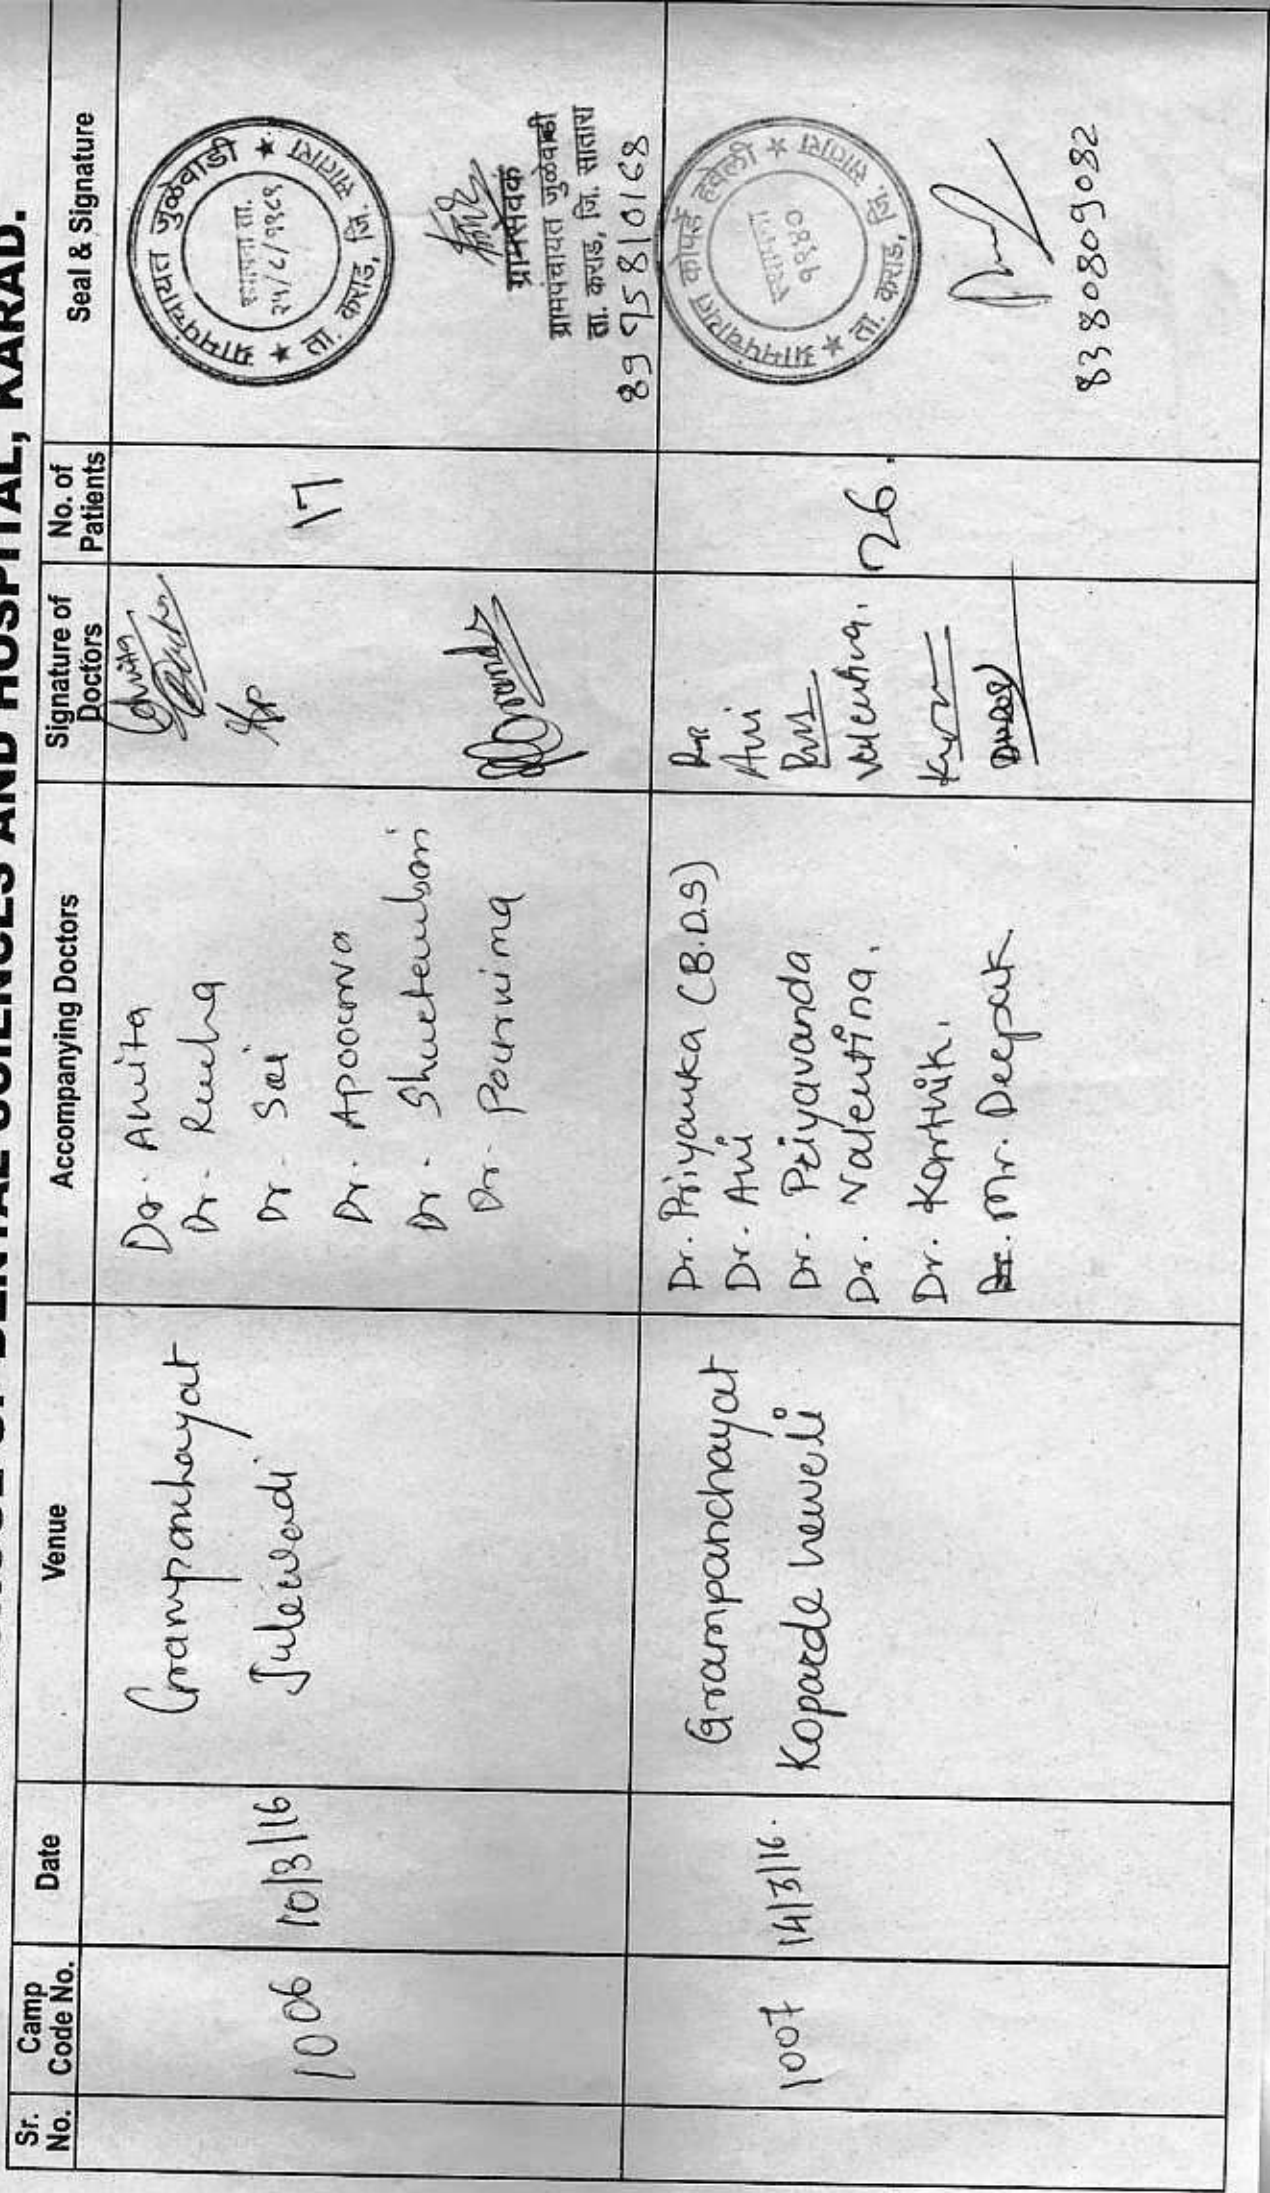 DENTAL SCIENCES AND HOSPITAL, KARAD.
Sr. No.
Camp Code No.
Date
Venue
Accompanying Doctors
Signature of Doctors
No. of Patients
Seal & Signature
1006
10/3/16
Grampanchayat
Julewadi
Dr. Amita
Dr. Rucha
Dr. Sai
Dr. Apoorva
Dr.
Dr. Pournima
17
ग्रामपंचायत जुळेवाडी
ता. कराड, जि. सातारा
स्थापना ता.
ग्रामसेवक
ग्रामपंचायत जुळेवाडी
ता. कराड, जि. सातारा
8975810168
1007
14/3/16.
Grampanchayat
Koparde haweli
Dr. Priyanka (B.D.S)
Dr. Avi
Dr. Priyavanda
Dr. Valentina.
Dr. Karthik.
Dr. Mr. Deepak
Avi
Valentina.
26.
ग्रामपंचायत कोपर्डे हवेली
ता. कराड, जि. सातारा
स्थापना
8380809082